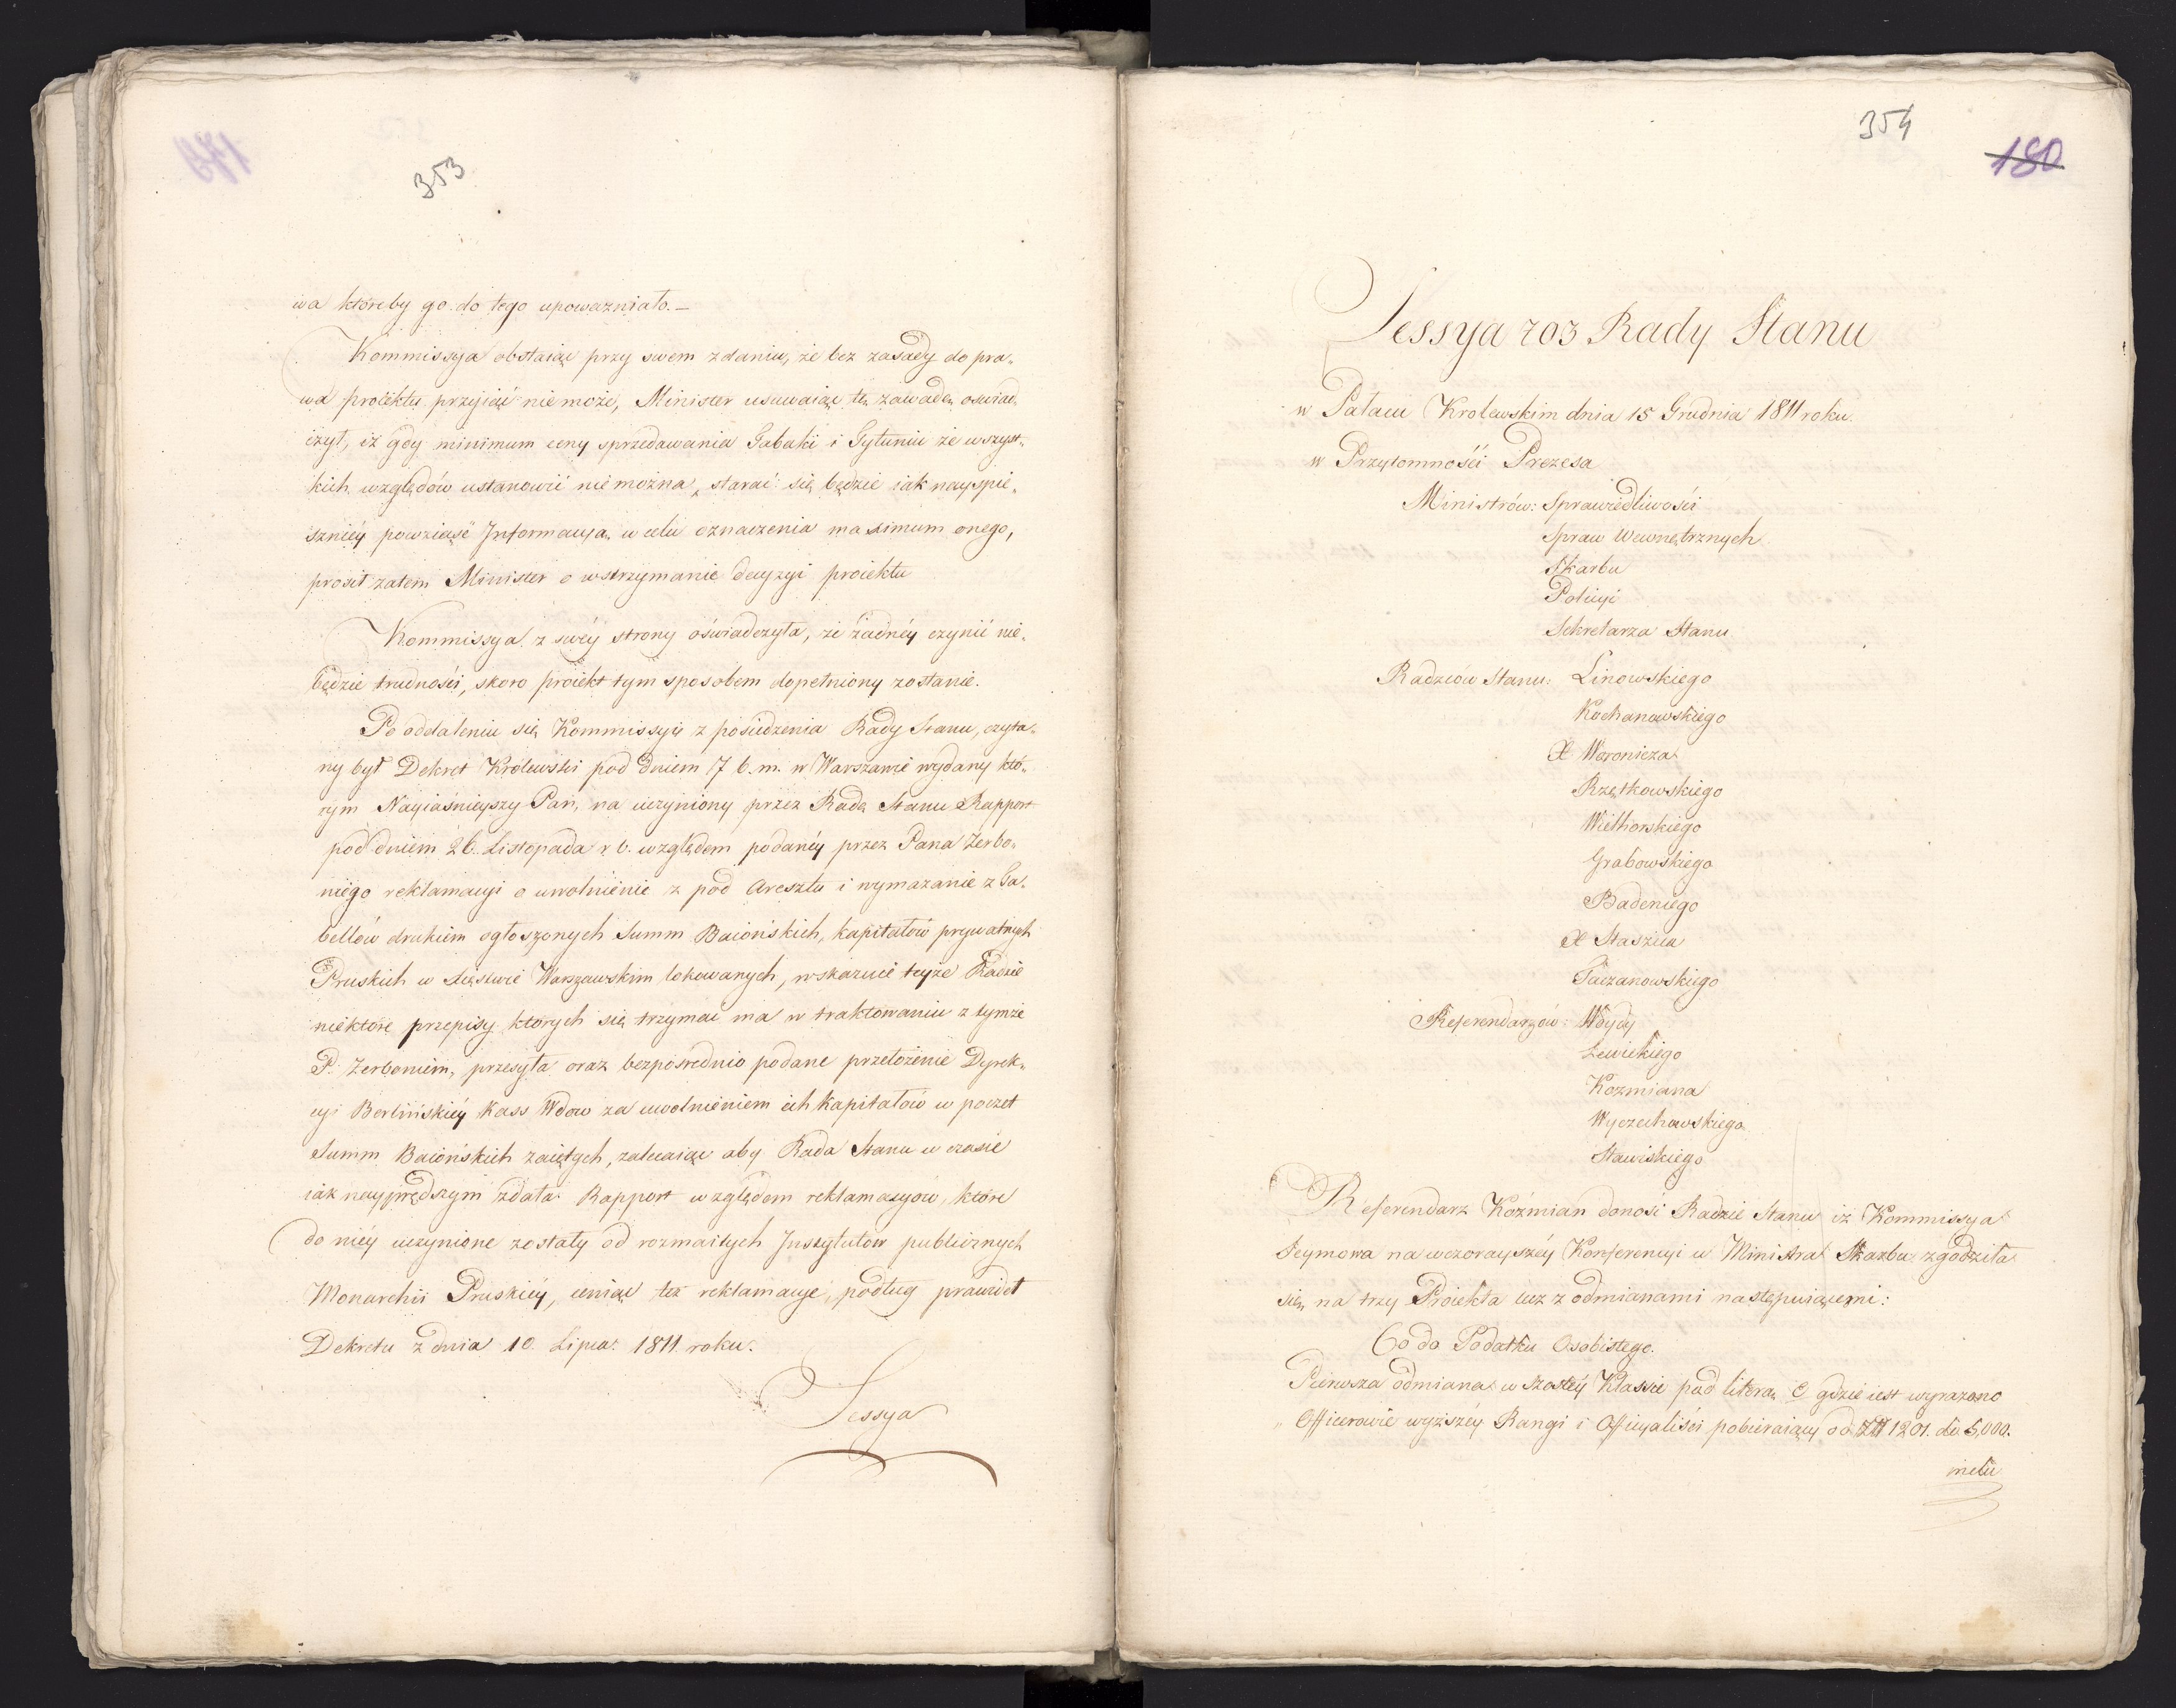 353
wa któreby go do tego upoważniało. —
Kommissya obstaiąc przy swem zdaniu, że bez zasady do pra„
wa proiektu przyiąć nie może, Minister usuwaiąc tę zawadę oświad„
czył, iż gdy minimum ceny sprzedawania Tabaki i Tytuniu ze wszyst„
kich względów ustanowić nie można, starać się będzie iak nayspie„
szniéy powziąść Informacyą w celu oznaczenia maximum onego,
prosił zatem Minister o wstrzymanie decyzyi proiektu
Kommissya z swéy strony oświadczyła, że żadnéy czynić nie„
będzie trudności, skoro proiekt tym sposobem dopełniony zostanie.
Po oddaleniu się Kommissyi z posiedzenia Rady Stanu, czyta„
ny był Dekret Królewski pod dniem 7 b. m. w Warszawie wydany któ„
rym Nayiaśnieyszy Pan, na uczyniony przez Radę Stanu Rapport
pod dniem 26. Listopada r. b. względem podanéy przez Pana Zerbo„
niego reklamacyi o uwolnienie z pod Aresztu i wymazanie z Ta„
bellów drukiem ogłoszonych Summ Baiońskich, kapitałów prywatnych
Pruskich w Xięstwie Warszawskim lokowanych, wskazuie teyże Radzie
niektóre przepisy których się trzymać ma w traktowaniu z tymże
P. Zerbonim, przesyła oraz bezpośrednio podane przełożenie Dyrek„
cyi Berlińskiéy Kass Wdow za uwolnieniem ich Kapitałów w poczet
Summ Baiońskich zaiętych, zalecaiąc aby Rada Stanu w czasie
iak nayprędszym zdała Rapport względem reklamacyów, które
do niéy uczynione zostały od rozmaitych Instytutow publicznych
Monarchii Pruskiéy, ceniąc też reklamacye podług prawideł
Dekretu z dnia 10. Lipca 1811 roku.
Sessya
354
180
Sessya 203 Rady Stanu
w Pałacu Krolewskim dnia 15 Grudnia 1811 roku.
w Przytomności Prezesa
Ministrów: Sprawiedliwości
Spraw Wewnętrznych
Skarbu
Policyi
Sekretarza Stanu
Radzców Stanu: Linowskiego
Kochanowskiego
X Woronicza
Rzętkowskiego
Wielhorskiego
Grabowskiego
Badeniego
X Staszica
Taczanowskiego
Referendarzów: Woydy
Lewickiego
Kozmiana
Wyczechowskiego
Stawiskiego
Referendarz Koźmian donosi Radzie Stanu iż Kommissya
Seymowa na wczorayszéy Konferencyi u Ministra Skarbu zgodziła
się na trzy Proiekta lecz z odmianami następuiącemi:
Co do Podatku Osobistego.
Pierwsza odmiana w Szostéy Klassie pod literą C gdzie iest wyrażono
„Officerowie wyższéy Rangi i Officyaliści pobieraiący od 1201. do 5,000.